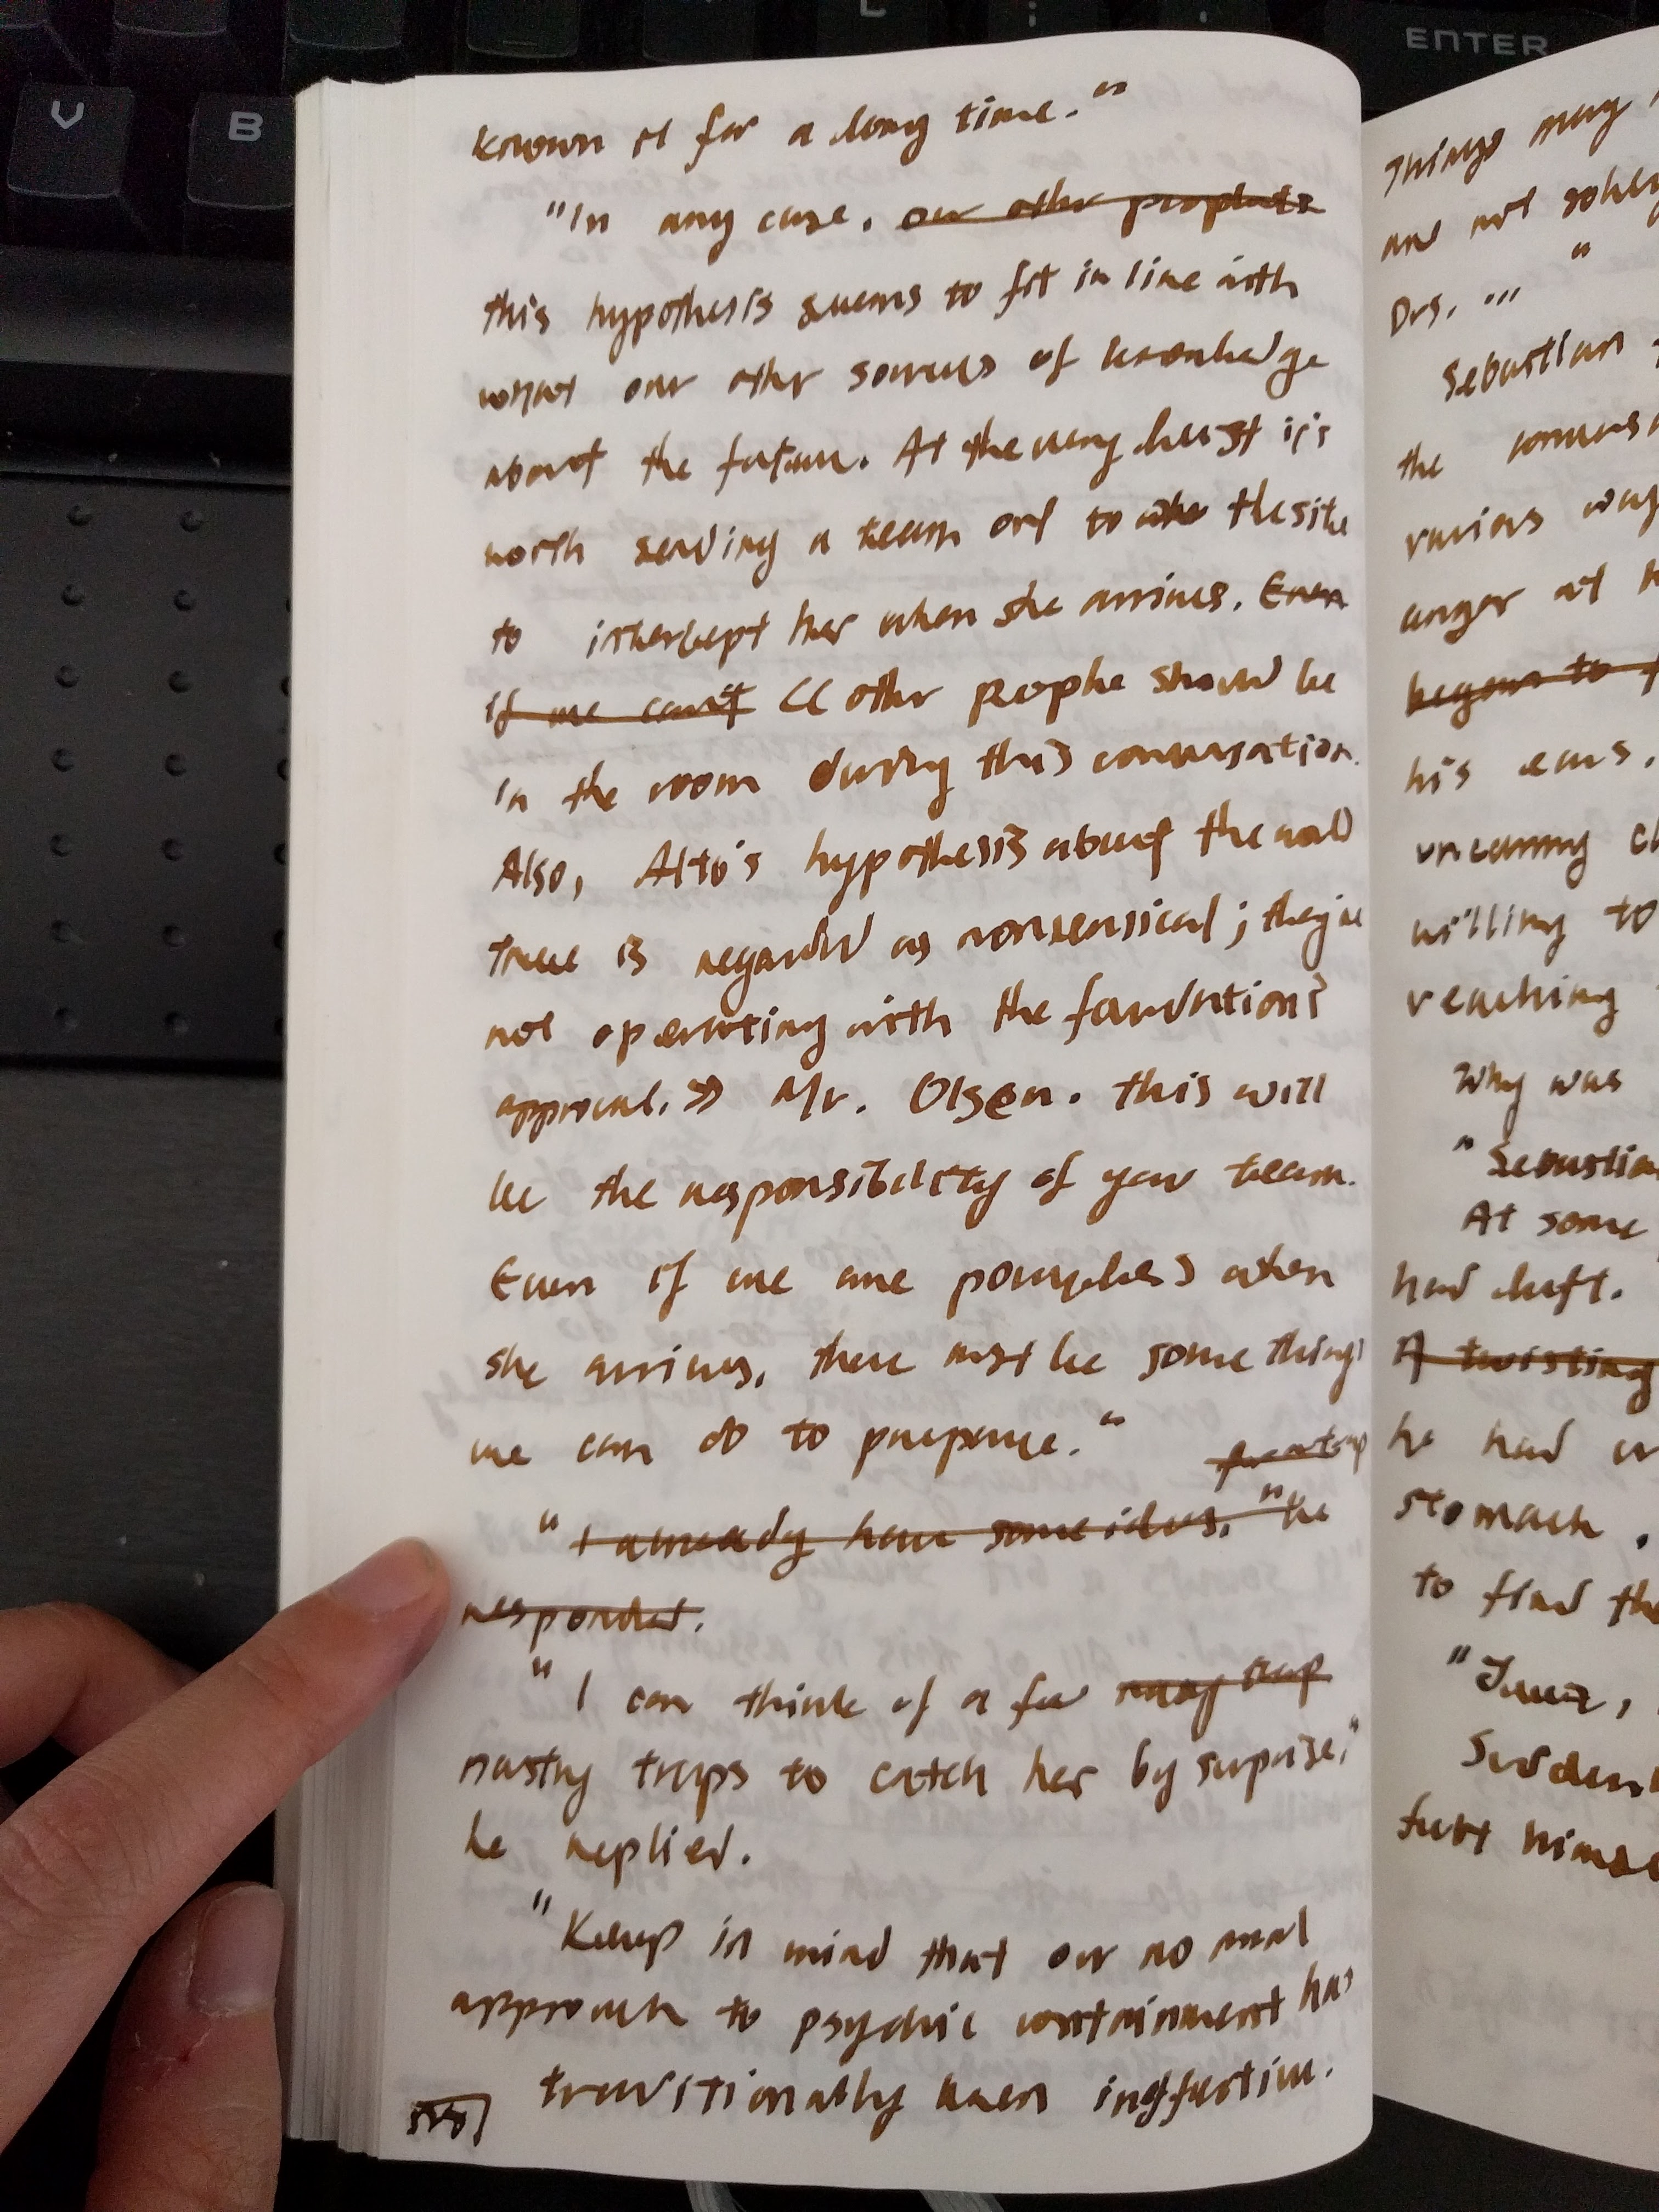 V
B
ENTER
known it for a long time."
"In any case, our other prophets
this hypothesis seems to fit in line with
what our other sources of knowledge
about the future. At the very least it's
worth sending a team out to the site
to intercept her when she arrives. Even
if we can't << other people should be
in the room during this conversation.
Also, Alto's hypothesis about the
There is regarded as nonsensical; they're
not operating with the foundation's
approval. >> Mr. Olsen. this will
be the responsibility of your team.
Even if we are powerless when
she arrives, there must be some things
we can do to prepare."
for a trap
"I already have some ideas," he
responded.
"I can think of a few nasty trap
nasty traps to catch her by suprise,"
he replied.
"Keep in mind that our normal
approach to psychic containment has
traditionally been ineffective.
Things may
are not solely
Drs. ... "
Sebastian
the
various
anger at
began to
his ears.
uncanny
willing to
reaching
Why was
"Sebastian
At some
had left.
A twisting
he had
stomach.
to find the
"
Sudden
felt himse